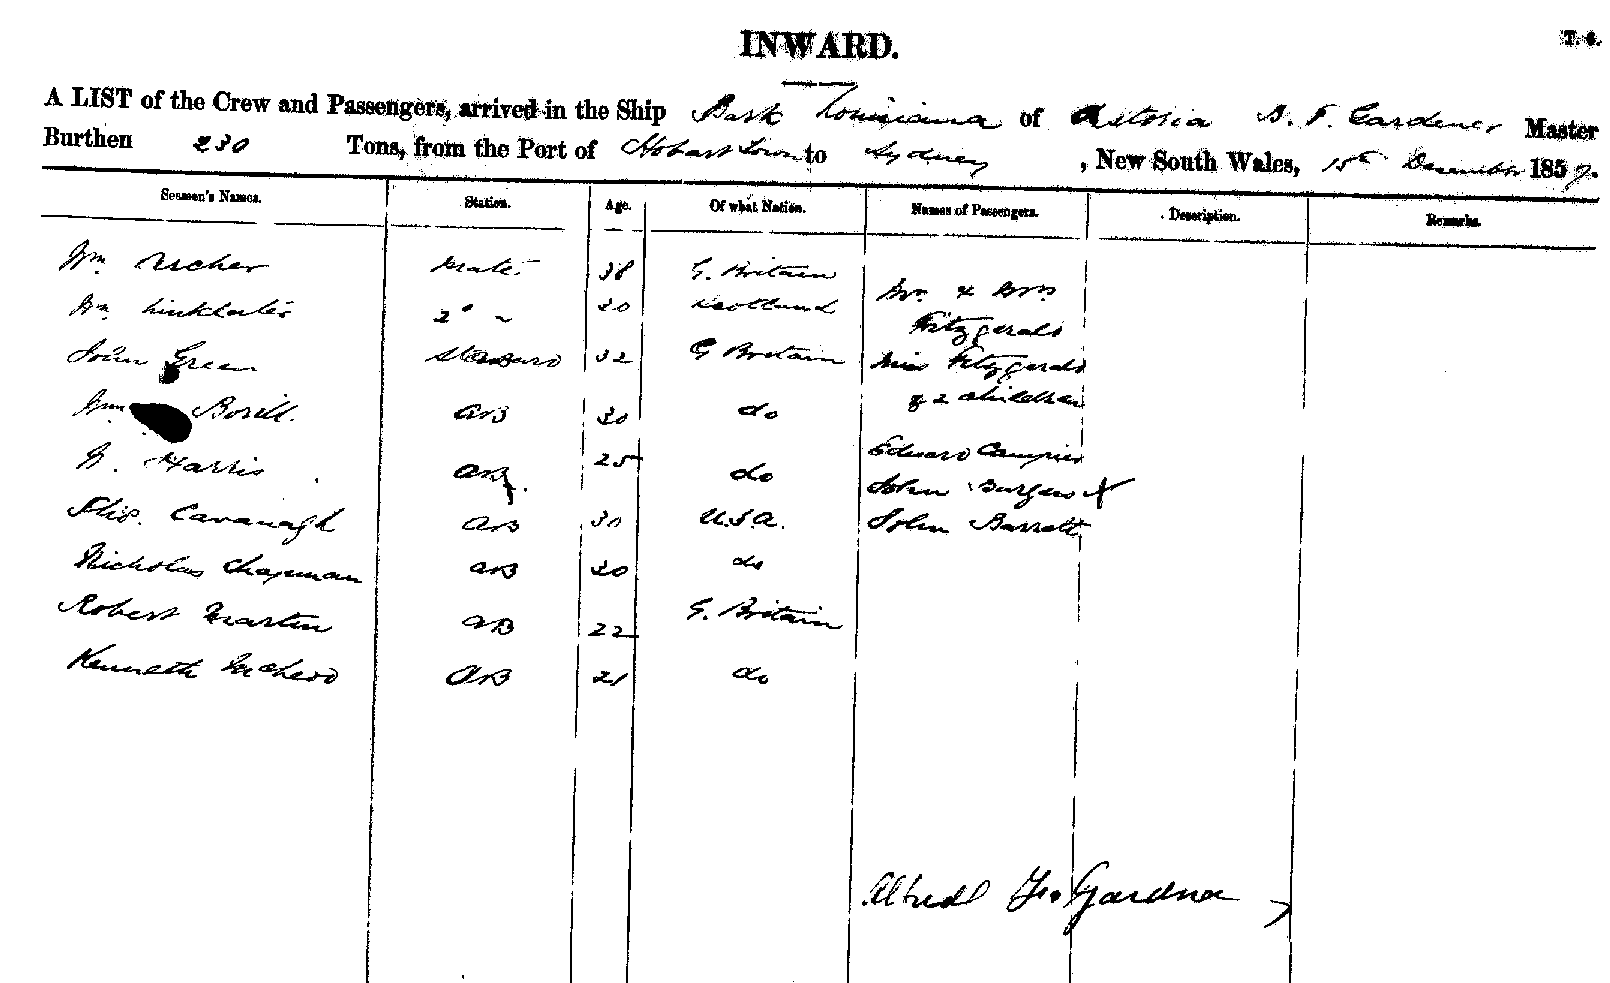 INWARD.
T. 6.
A LIST of the Crew and Passengers, arrived in the Ship Bark Louisiana of Astoria B. F. Gardener Master
Burthen 230 Tons, from the Port of Hobart Town to Sydney, New South Wales, 15th December 1859.
Seamen's Names. Station. Age. Of what Nation. Names of Passengers. Description. Remarks.
Wm. Archer Mate 38 G. Britain
Mr. & Mrs.
Wm. Linklater 2d " 20 Scotland
Fitzgerald
John Green Steward 32 G Britain Miss Fitzgerald
Wm Borill. AB 30 do & 2 children
W. Harris AB 25 do Edward
John Burgess X
Cavanagh AB 30 U.S.A. John Barrett
Nicholas Chapman AB 20 do
Robert Martin AB 22 G. Britain
Kenneth McLeod AB 21 do
Alfred Geo Gardner